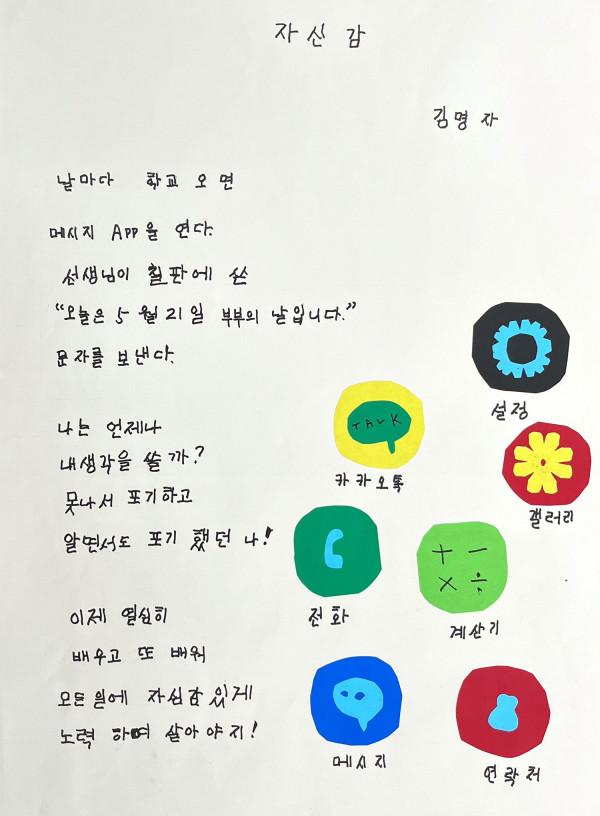 자신감
김명자
날마다 학교 오면
메시지 App을 연다.
선생님이 칠판에 쓴
“오늘은 5월 21일 부부의 날입니다.”
문자를 보낸다.
나는 언제나
내생각을 쓸까?
못나서 포기하고
알면서도 포기 했던 나!
이제 열심히
배우고 또 배워
모든일에 자신감 있게
노력 하며 살아야지!
설정
TALK
카카오톡
갤러리
전화
+ −
× ÷
계산기
메시지
연락처